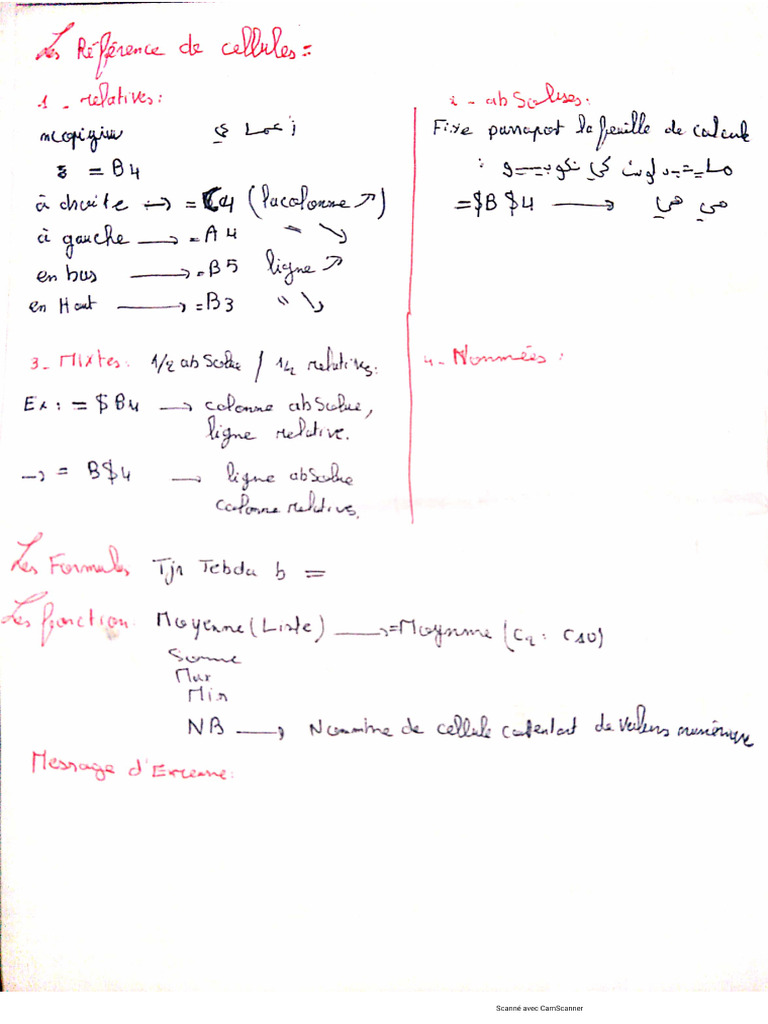 Les Référence de cellules :
1 - relatives :
ncopiyiw زعما ي
= B4
à droite → = C4 (la colonne ↗)
à gauche → = A4 " ↘
en bas → = B5 ligne ↗
en Haut → = B3 " ↘
2 - absolues :
Fixe parraport la feuille de calcule
ما يتبدلوش كي نكوپيو :
= $B$4 → هي هي
3 - Mixtes : 1/2 absolue / 1/2 relatives.
Ex : = $B4 → colonne absolue,
ligne relative.
→ = B$4 → ligne absolue
colonne relative.
4 - Nommées :
Les Formules Tjr Tebda b =
Les fonction : Moyenne (Liste) → = Moyenne (C2 : C10)
Somme
Max
Min
NB → Nommbre de cellule contentant de valeurs numérique
Message d'Erreure :
Scanné avec CamScanner